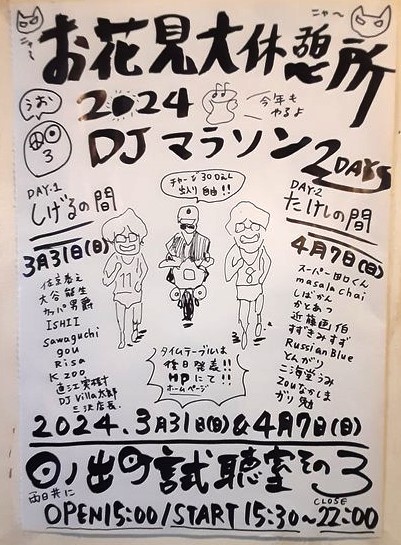 ニャ〜
ニャ〜
お花見大休憩所
うお
2024
今年も
やるよ
3
DJマラソン
2DAYS
チャージ300えん
出入り自由!!
DAY.1
しげるの間
3月31日(日)
大谷能生
カッパ男爵
ISHII
Sawaguchi
gou
Risa
K200
DJ Villa太郎
三沢店長.
11
8
DAY.2
たけしの間
4月7日(日)
スーパー田口くん
masala chai
しばかん
かとあつ
近藤画伯
すずきみすず
Russian Blue
とんがり
二海堂うみ
ZOUなかしま
ガリ勉
タイムテーブルは
後日発表!!
HPにて!!
ホームページ
2024.3月31日(日)&4月7日(日)
日ノ出町試聴室その3
両日共に
CLOSE
OPEN15:00/START 15:30~22:00